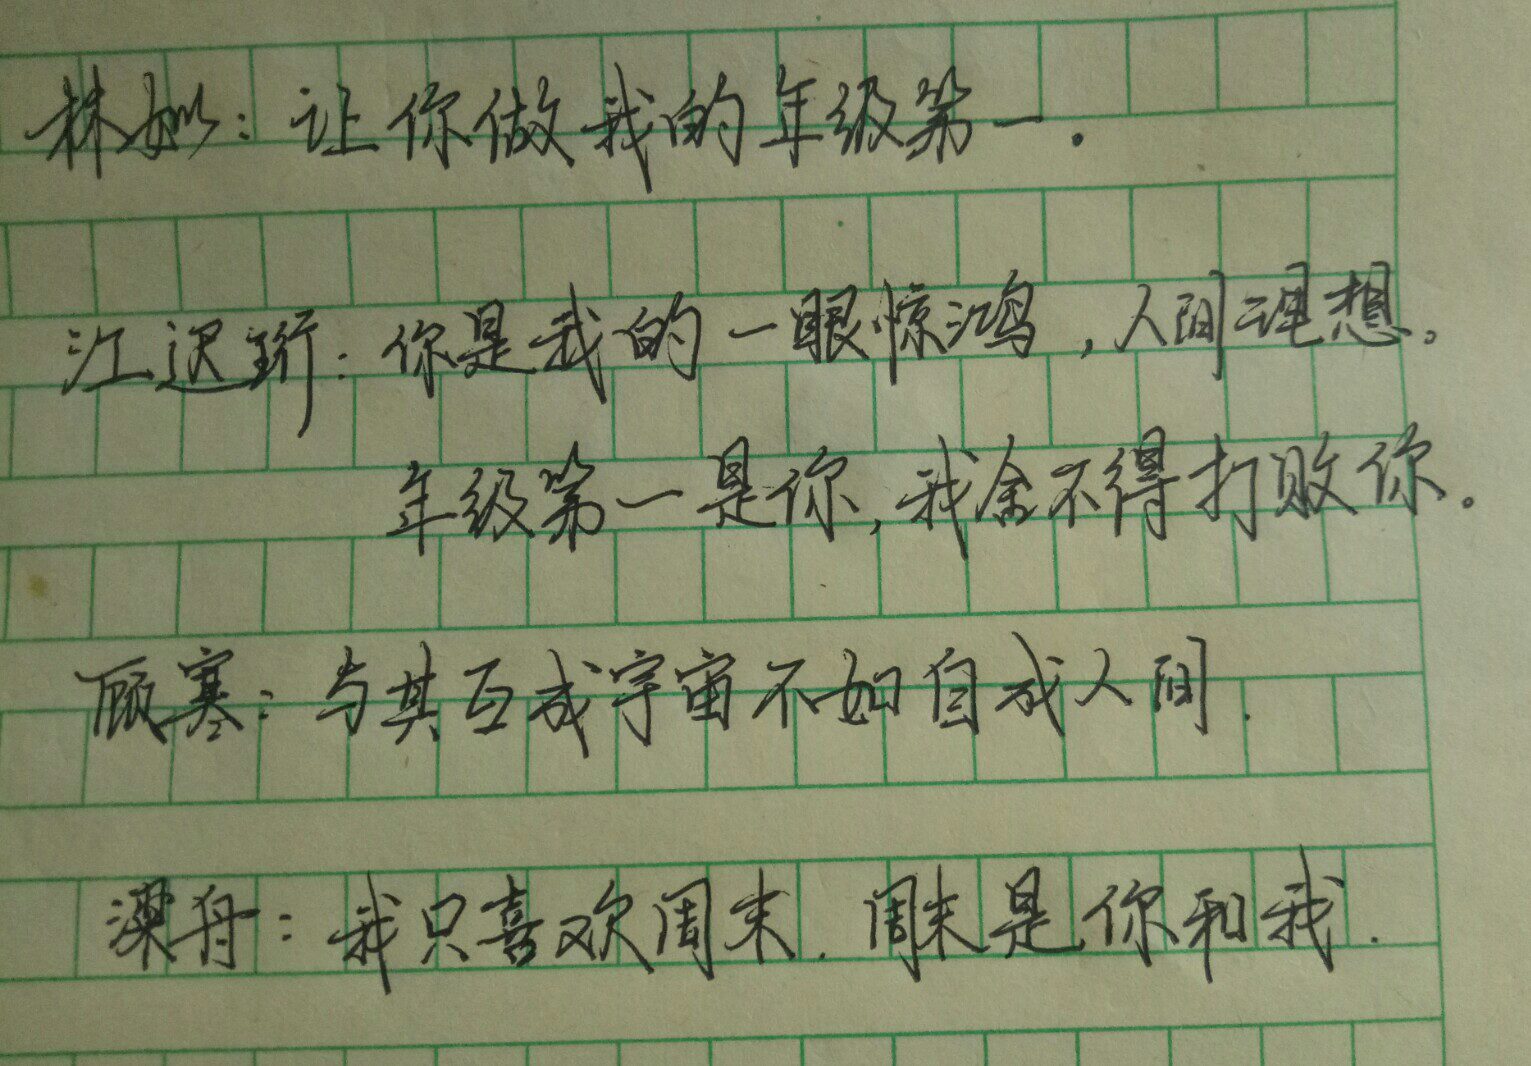 林姒：让你做我的年级第一.
江迟珩：你是我的一眼惊鸿，人间理想。
年级第一是你,我舍不得打败你.
顾寒：与其互成宇宙不如自成人间.
梁舟：我只喜欢周末.周末是你和我.